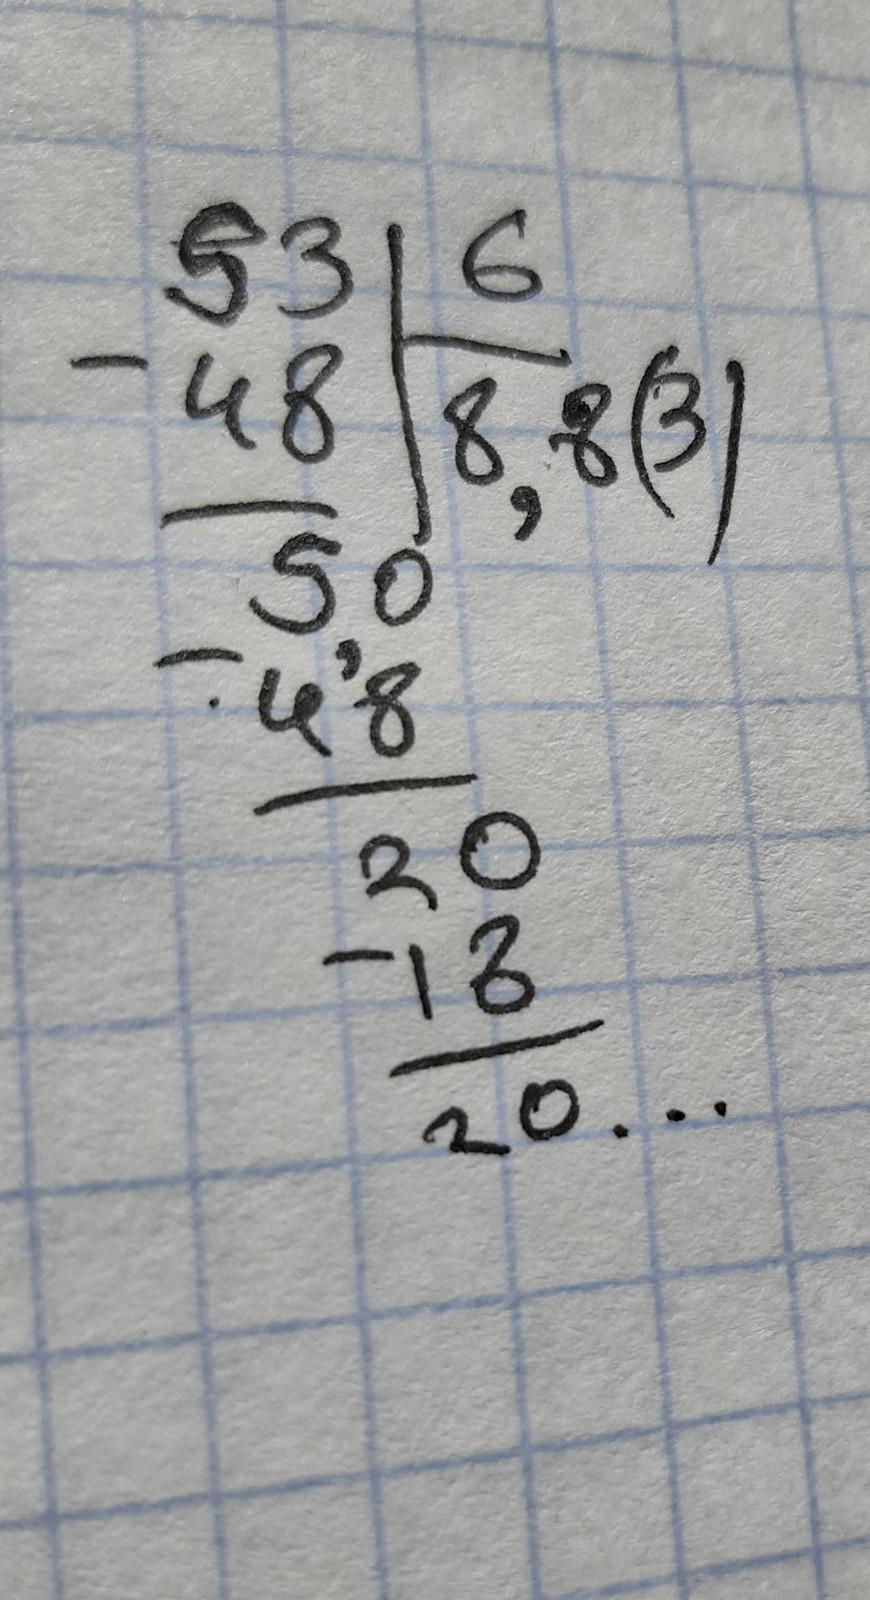 53 | 6
- 48 | 8,8(3)
5,0
- 4,8
20
- 18
20...